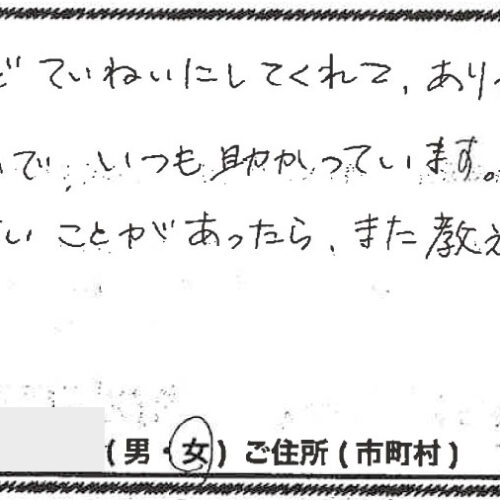 どていねいにしてくれて、あり
で、いつも助かっています。
いことがあったら、また教え
(男・女)ご住所(市町村)